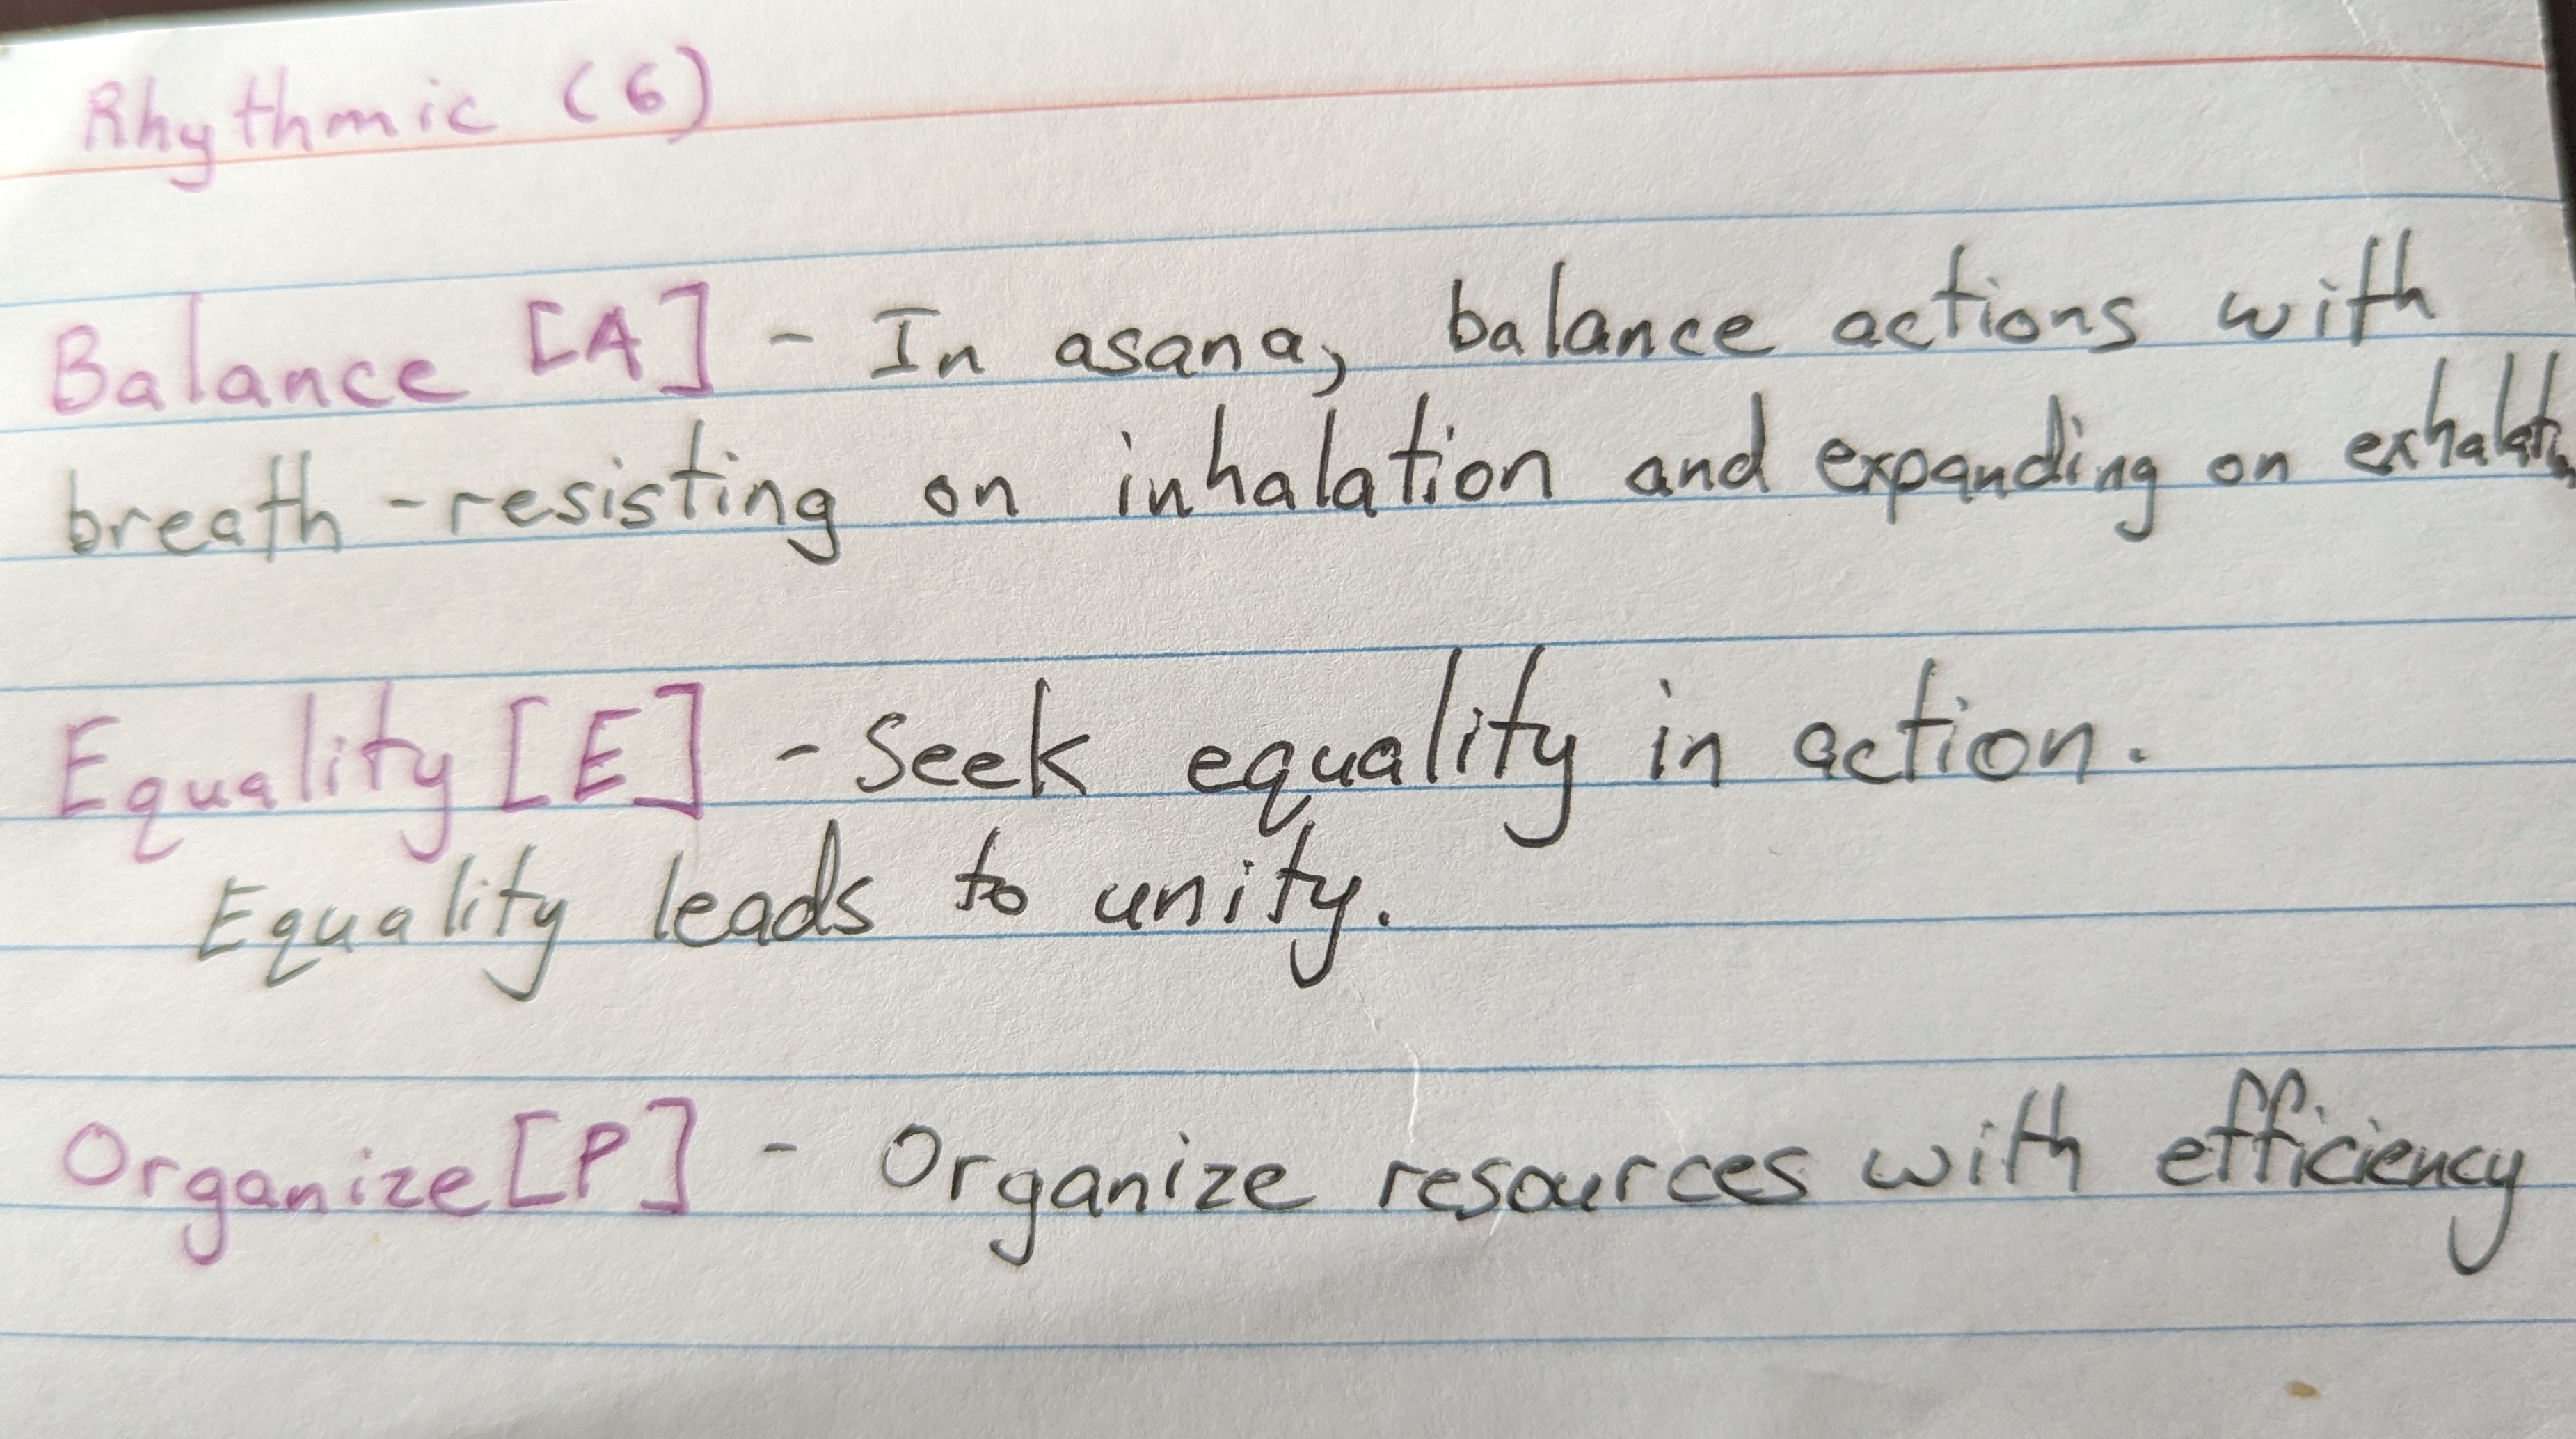 Rhythmic (6)
Balance [A] - In asana, balance actions with
breath - resisting on inhalation and expanding on exhalation
Equality [E] - Seek equality in action.
Equality leads to unity.
Organize [P] - Organize resources with efficiency